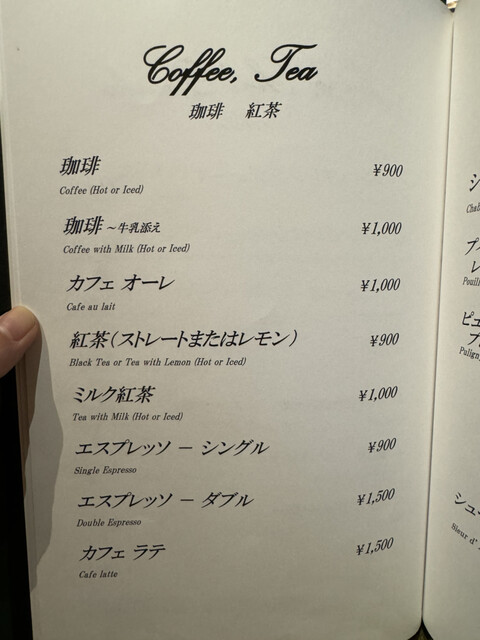 Coffee, Tea
珈琲 紅茶
珈琲 ¥900
Coffee (Hot or Iced)
珈琲 ～牛乳添え ¥1,000
Coffee with Milk (Hot or Iced)
カフェ オーレ ¥1,000
Cafe au lait
紅茶（ストレートまたはレモン） ¥900
Black Tea or Tea with Lemon (Hot or Iced)
ミルク紅茶 ¥1,000
Tea with Milk (Hot or Iced)
エスプレッソ － シングル ¥900
Single Espresso
エスプレッソ － ダブル ¥1,500
Double Espresso
カフェ ラテ ¥1,500
Cafe latte